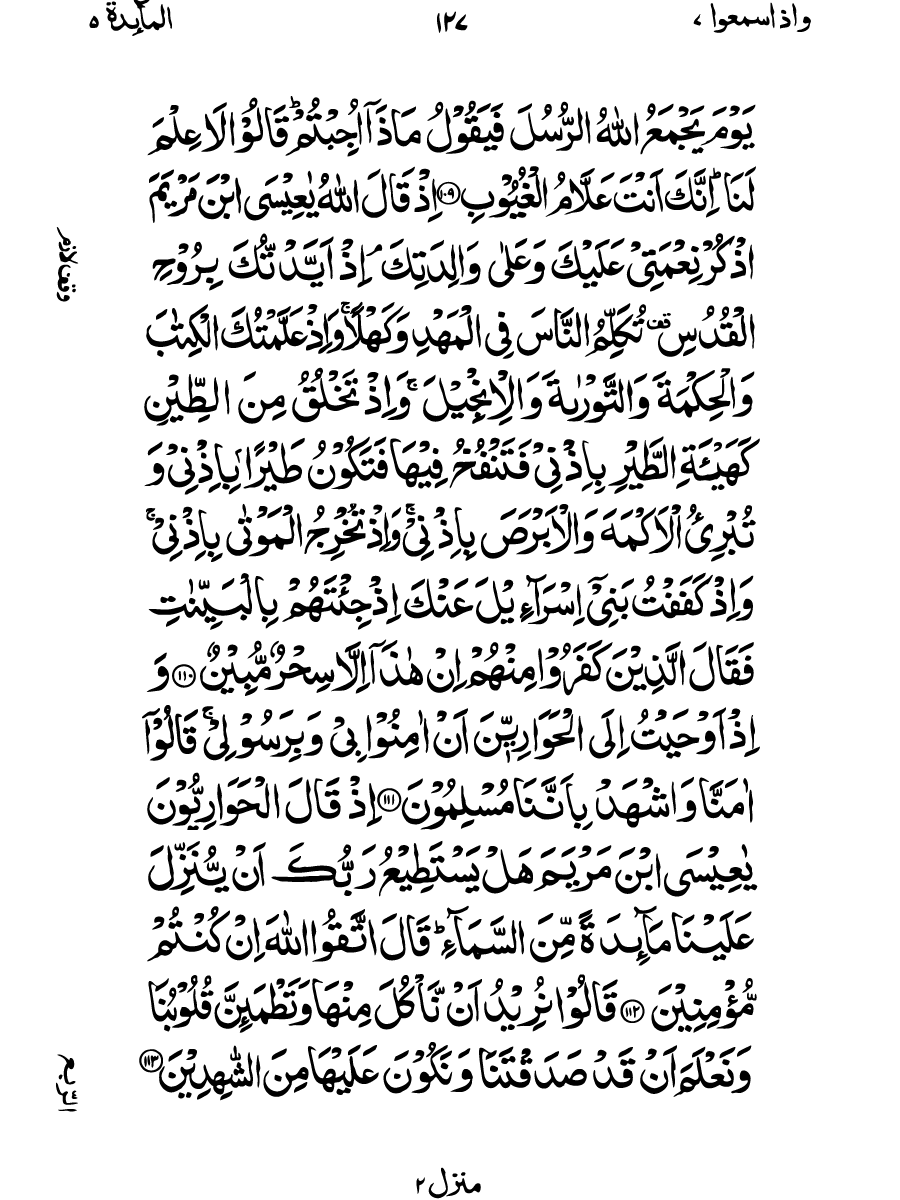 واذا سمعوا ٧
١٢٧
المآىِٕدة ٥
يَوْمَ يَجْمَعُ اللّٰهُ الرُّسُلَ فَيَقُوْلُ مَاذَاۤ اُجِبْتُمْ ؕ قَالُوْا لَا عِلْمَ
لَنَا ؕ اِنَّكَ اَنْتَ عَلَّامُ الْغُيُوْبِ ﴿۱۰۹﴾ اِذْ قَالَ اللّٰهُ يٰعِيْسَى ابْنَ مَرْيَمَ
اذْكُرْ نِعْمَتِيْ عَلَيْكَ وَعَلٰى وَالِدَتِكَ ۘ اِذْ اَيَّدْتُّكَ بِرُوْحِ
الْقُدُسِ ۫ تُكَلِّمُ النَّاسَ فِي الْمَهْدِ وَكَهْلًا ۚ وَاِذْ عَلَّمْتُكَ الْكِتٰبَ
وَالْحِكْمَةَ وَالتَّوْرٰىةَ وَالْاِنْجِيْلَ ۚ وَاِذْ تَخْلُقُ مِنَ الطِّيْنِ
كَهَيْـَٔةِ الطَّيْرِ بِاِذْنِيْ فَتَنْفُخُ فِيْهَا فَتَكُوْنُ طَيْرًۢا بِاِذْنِيْ وَ
تُبْرِئُ الْاَكْمَهَ وَالْاَبْرَصَ بِاِذْنِيْ ۚ وَاِذْ تُخْرِجُ الْمَوْتٰى بِاِذْنِيْ ۚ
وَاِذْ كَفَفْتُ بَنِيْۤ اِسْرَآءِيْلَ عَنْكَ اِذْ جِئْتَهُمْ بِالْبَيِّنٰتِ
فَقَالَ الَّذِيْنَ كَفَرُوْا مِنْهُمْ اِنْ هٰذَاۤ اِلَّا سِحْرٌ مُّبِيْنٌ ﴿۱۱۰﴾ وَ
اِذْ اَوْحَيْتُ اِلَى الْحَوَارِيّٖنَ اَنْ اٰمِنُوْا بِيْ وَبِرَسُوْلِيْ ۚ قَالُوْۤا
اٰمَنَّا وَاشْهَدْ بِاَنَّنَا مُسْلِمُوْنَ ﴿۱۱۱﴾ اِذْ قَالَ الْحَوَارِيُّوْنَ
يٰعِيْسَى ابْنَ مَرْيَمَ هَلْ يَسْتَطِيْعُ رَبُّكَ اَنْ يُّنَزِّلَ
عَلَيْنَا مَآىِٕدَةً مِّنَ السَّمَآءِ ؕ قَالَ اتَّقُوا اللّٰهَ اِنْ كُنْتُمْ
مُّؤْمِنِيْنَ ﴿۱۱۲﴾ قَالُوْا نُرِيْدُ اَنْ نَّاْكُلَ مِنْهَا وَتَطْمَىِٕنَّ قُلُوْبُنَا
وَنَعْلَمَ اَنْ قَدْ صَدَقْتَنَا وَنَكُوْنَ عَلَيْهَا مِنَ الشّٰهِدِيْنَ ﴿۱۱۳﴾
وقف لازم
الرّبع
منزل ٢